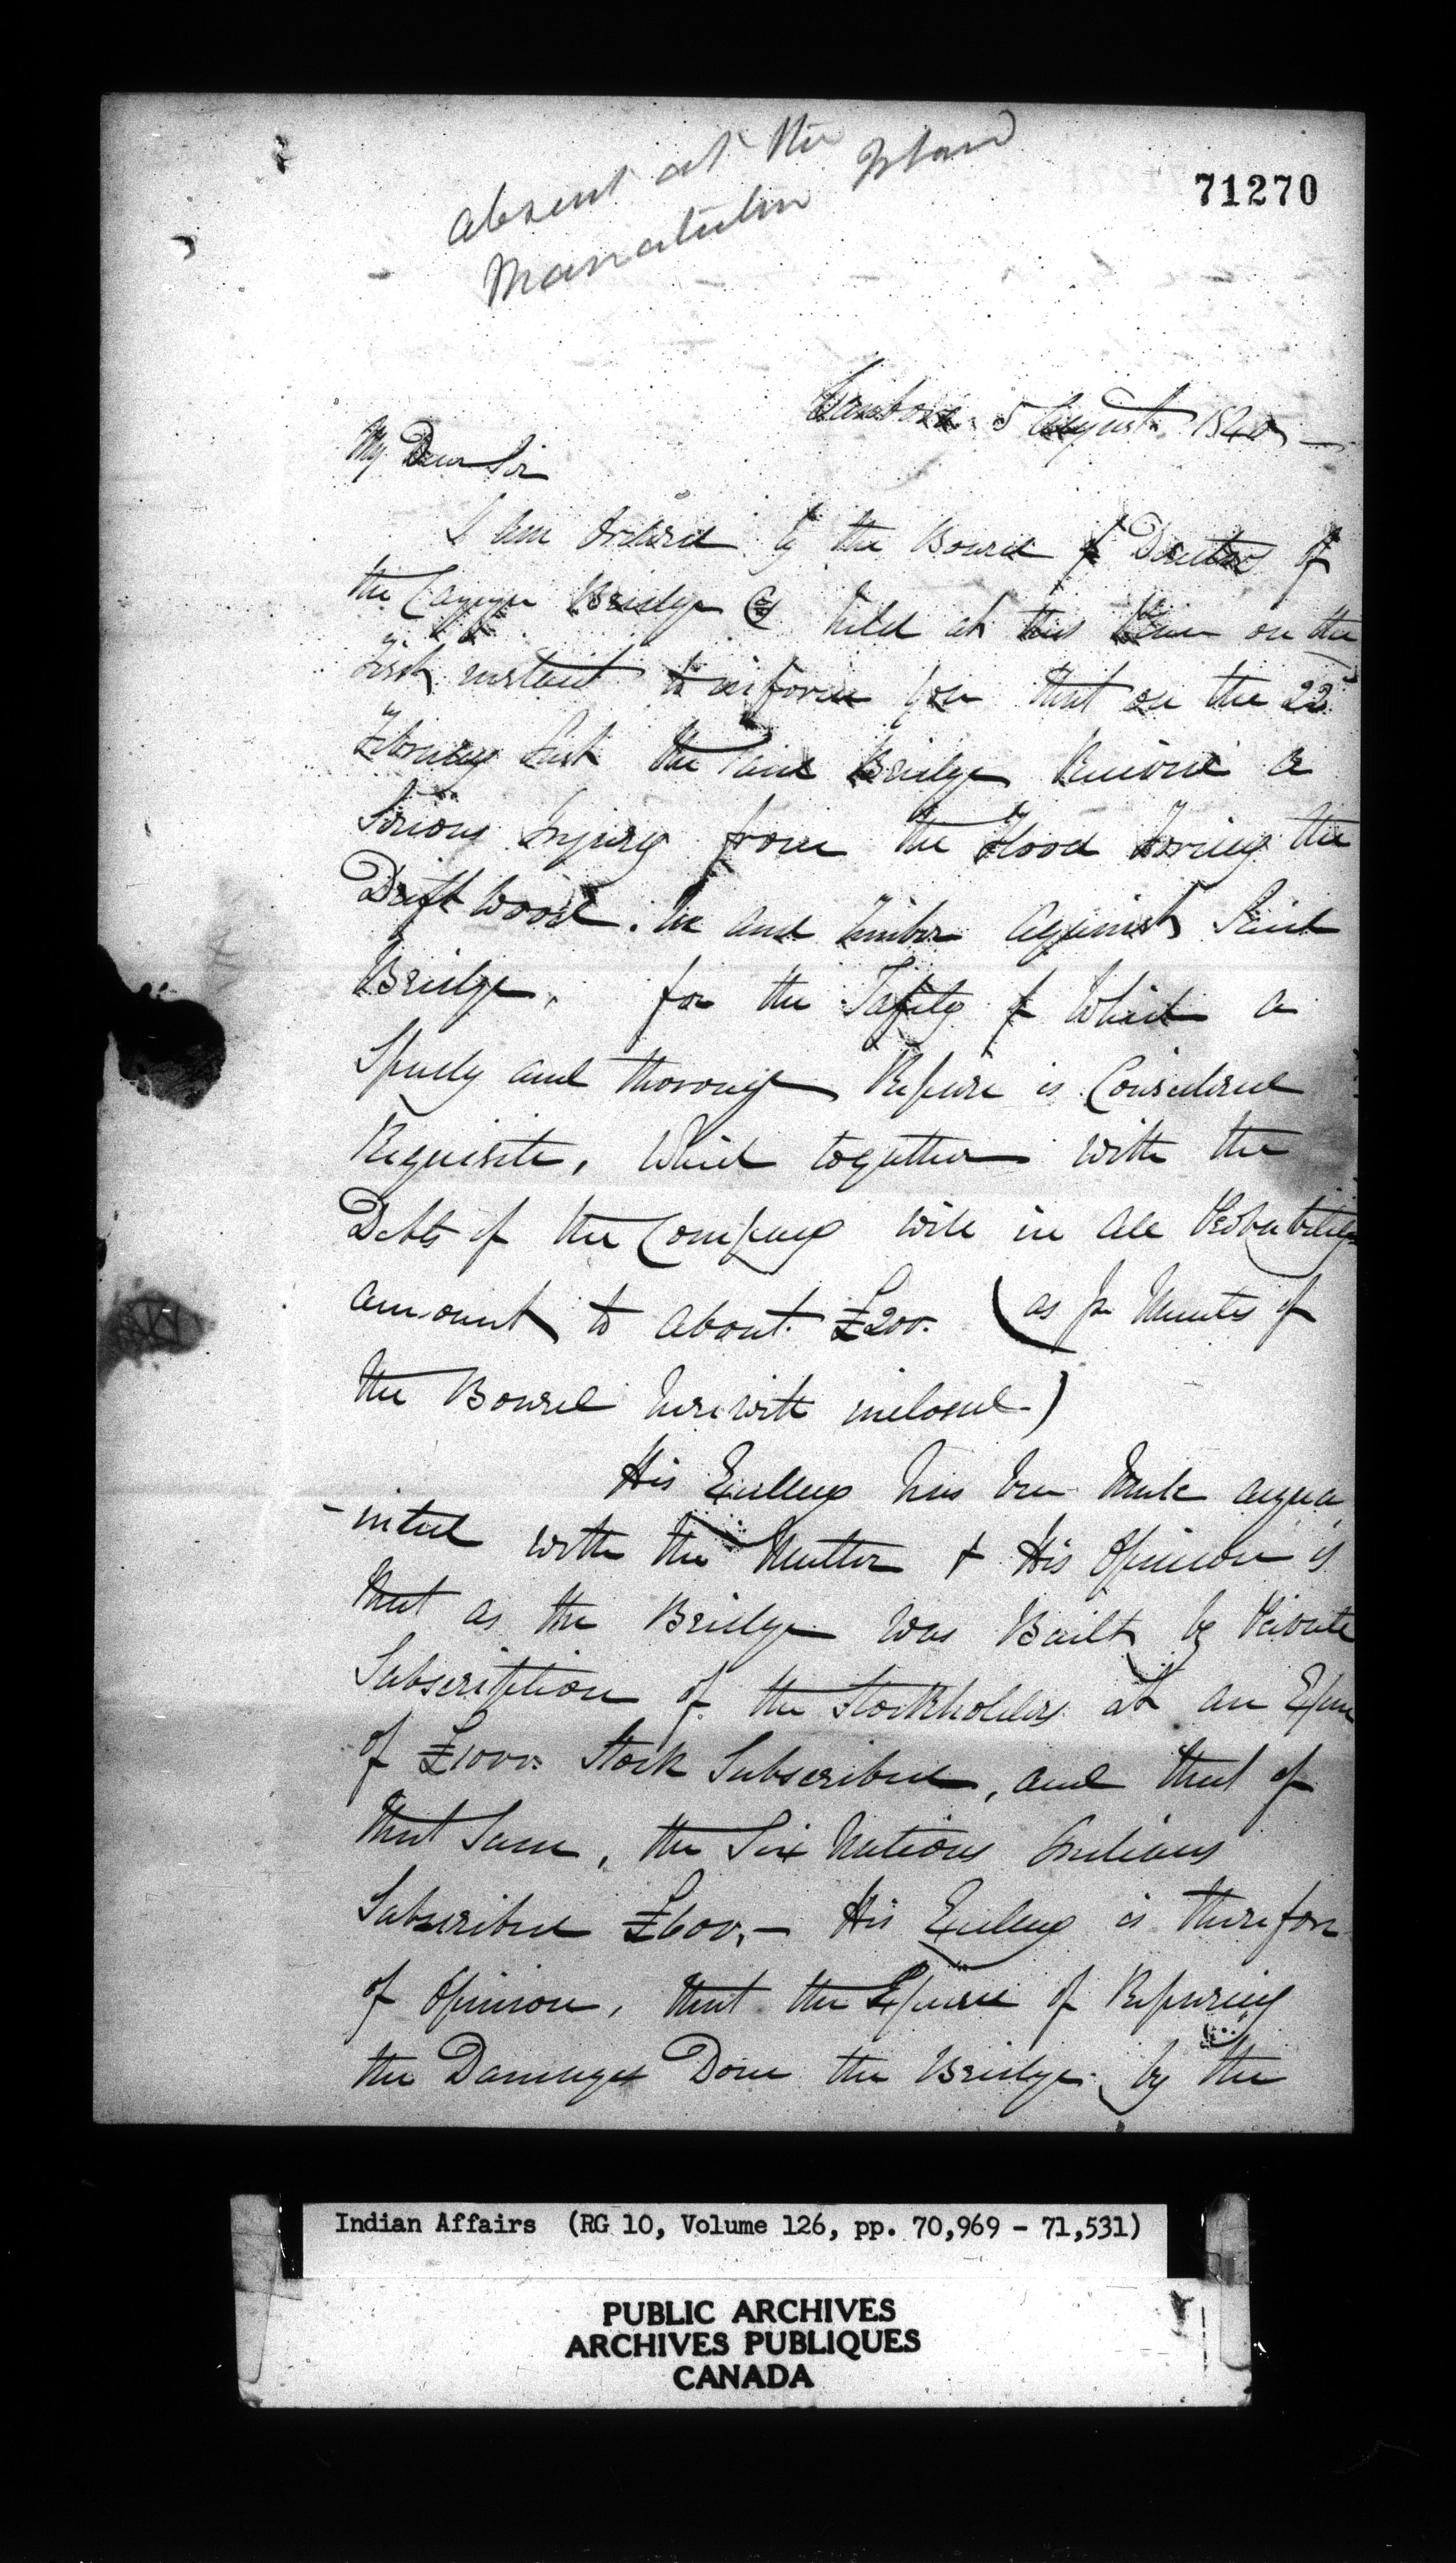 absent at the
Manatulin Islan
71270
5 August 1840
My Dear Sir
I Am Ordered by the Board of Directors of
the Cayuga Bridge Co held at this on the
first instant to inform you that on the 22d
February Last the said Bridge Received a
Serious Injury from the flood forcing the
Drift Wood. Ice and Timber Against Said
Bridge, for the Safety of Which a
Speedy and thorough Repair is Considered
Requisite, Which together with the
Debts of the Company will in all Probability
amount to about £200. (as pr Minutes of
the Board herewith inclosed)
His Excellency has been Made acqua
-inted with the Matter & His Opinion is
that as the Bridge was Built by Private
Subscription of the Stockholders at an
of £1000. Stock Subscribed, and that of
that Sum, the Six Nations Indians
Subscribed £600,- His Excellency is therefore
of Opinion, that the Expense of Repairing
the Damages Done the Bridge by the
Indian Affairs (RG 10, Volume 126, pp. 70,969 - 71,531)
PUBLIC ARCHIVES
ARCHIVES PUBLIQUES
CANADA